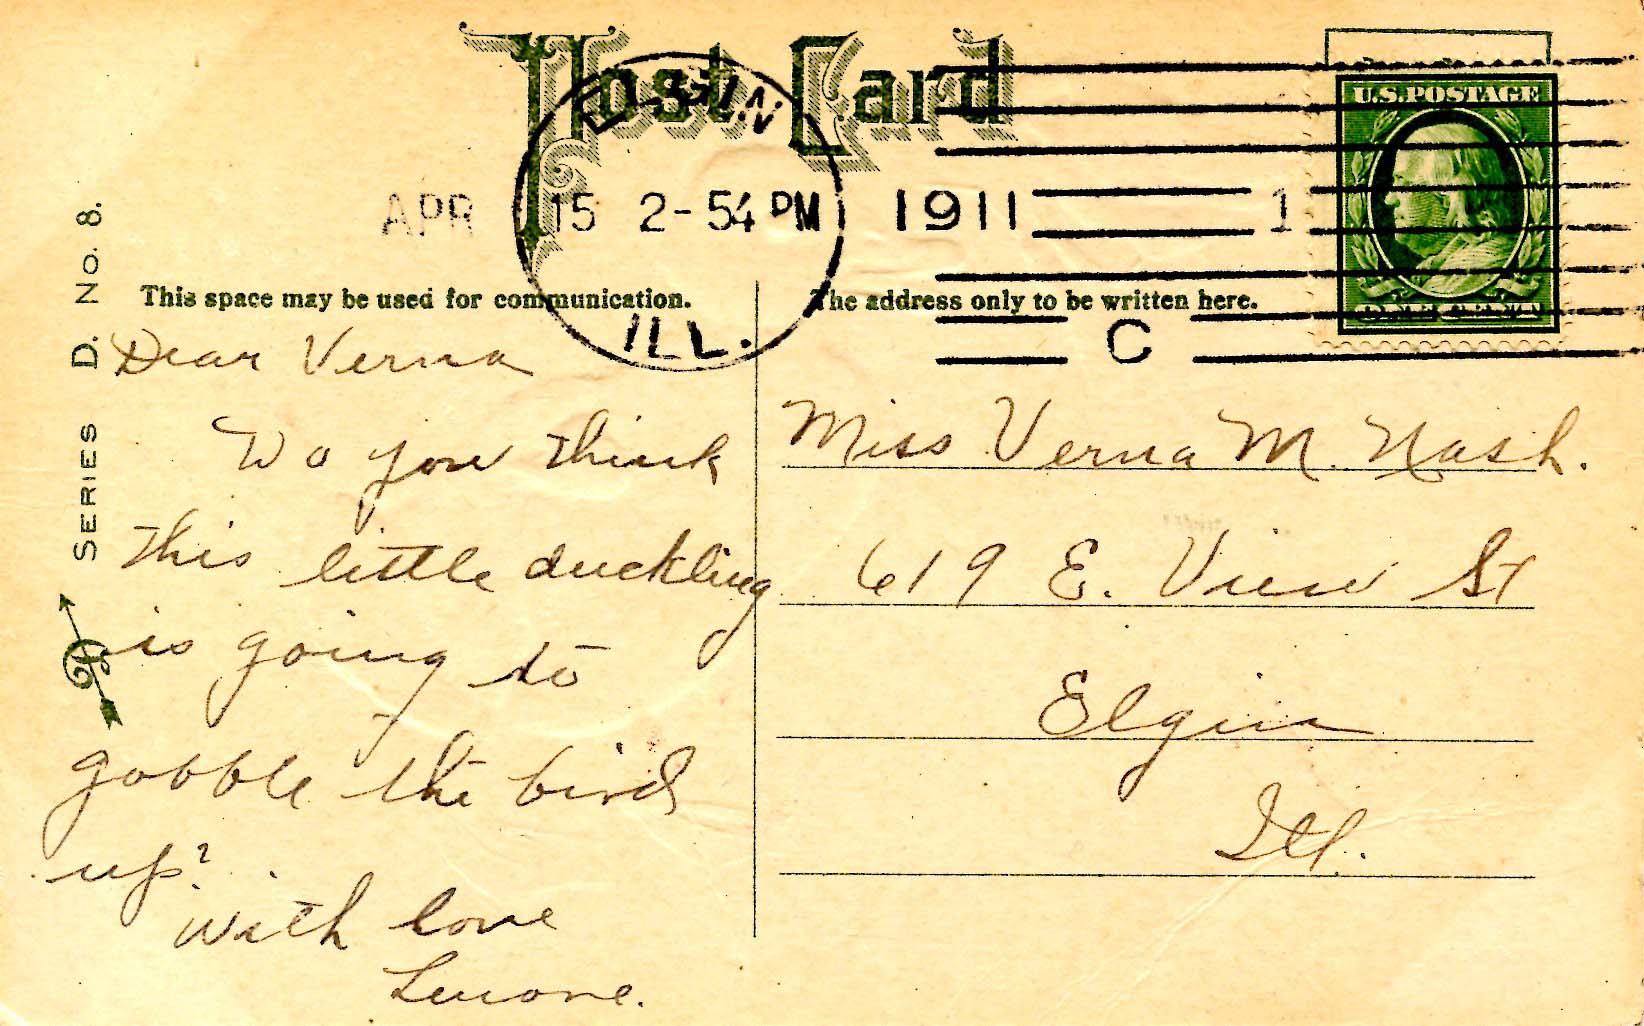 Post Card
ELGIN
APR 15 2-54 PM 1911 1
ILL.
C
U.S. POSTAGE
SERIES D. No. 8.
This space may be used for communication.
The address only to be written here.
Dear Verna
Do you think
this little duckling
is going to
gobble the bird
up?
with love
Lenore.
Miss Verna M. Nash.
619 E. View St
Elgin
Ill.